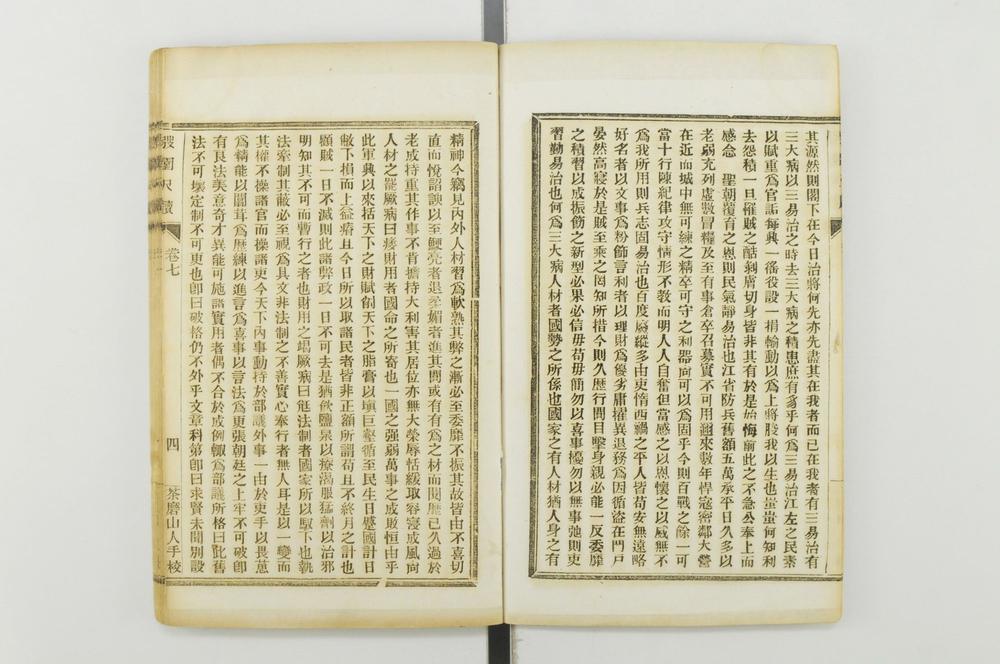 其源然則閣下在今日治將何先亦先盡其在我者而已在我者有三易治有
三大病以三易治之時去三大病之積患庶有豸乎何爲三易治江左之民素
以賦重爲官詬每興一徭役設一捐輸動以爲上將朘我以生也蚩蚩何知利
去怨積一旦罹賊之酷剝膚切身皆非其有於是始悔前此之不急公奉上而
感念　聖朝覆育之恩則民氣靜易治也江省防兵舊額五萬承平日久多以
老弱充列虛數冒糧及至有事倉卒召募實不可用邇來數年悍寇密鄰大營
在近而城中無可練之精卒可守之利器向可以爲固乎今則百戰之餘一可
當十行陳紀律攻守情形不敎而明人人自奮但當感之以恩懷之以威無不
爲我所用則兵志固易治也百度廢縱多由吏惰西禍之平人皆苟安無遠略
好名者以文事爲粉飾言利者以理財爲優劣庸擢異退務爲因循盜在門戶
晏然高寢於是賊至乘之罔知所措今則久歷行間目擊身親必能一反委靡
之積習以成振飭之新型必果必信毋苟毋簡勿以喜事擾勿以無事弛則吏
習勤易治也何爲三大病人材者國勢之所係也國家之有人材猶人身之有
精神今竊見內外人材習爲軟熟其弊之漸必至委靡不振其故皆由不喜切
直而悅諂諛以至鯁亮者退柔媚者進其間或有有爲之材而閱歷已久過於
老成持重其作事不肯擔持大利害其居位亦無大榮辱恬緩取容寖成風尙
人材之罷厥病曰痿財用者國命之所寄也一國之强弱萬事之成敗恒由乎
此軍興以來括天下之財賦刮天下之脂膏以塡巨壑循至民生日蹙國計日
敝下損而上益瘠且今日所以取諸民者皆非正額所謂苟且不終月之計也
顧賊一日不滅則此諸弊政一日不可去是猶飲鹽泉以療渴服猛劑以治邪
明知其不可而暫行之者也財用之竭厥病曰尫法制者國家所以馭下也執
法牽制其蔽必至視爲具文非法制之不善實心奉行者無人耳是以一變而
其權不操諸官而操諸吏今天下內事動持於部議外事一由於吏手以畏葸
爲精能以闒茸爲歷練以進言爲喜事以言法爲更張朝廷之上牢不可破卽
有良法美意奇才異能可施諸實用者偶不合於成例輒爲部議所格曰此舊
法不可壞定制不可更也卽曰破格仍不外乎文章科第卽曰求賢未聞別設
弢園尺牘
卷七
四
茶磨山人手校